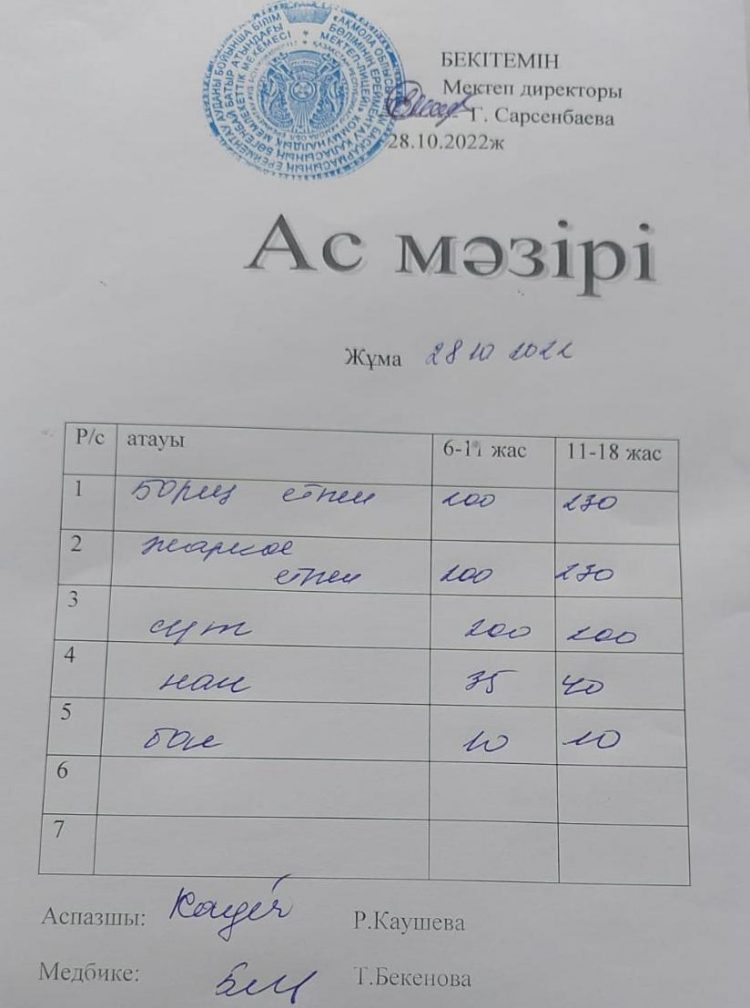 БЕКІТЕМІН
Мектеп директоры
Г. Сарсенбаева
28.10.2022ж
Ас мәзірі
Жұма 28 10 2022
Р/с атауы 6-11 жас 11-18 жас
1 Борщ етпен 200 230
2 жаркое
етпен 200 230
3 сүт 200 200
4 нан 35 40
5 бал 10 10
6
7
Аспазшы: Р.Каушева
Медбике: Т.Бекенова